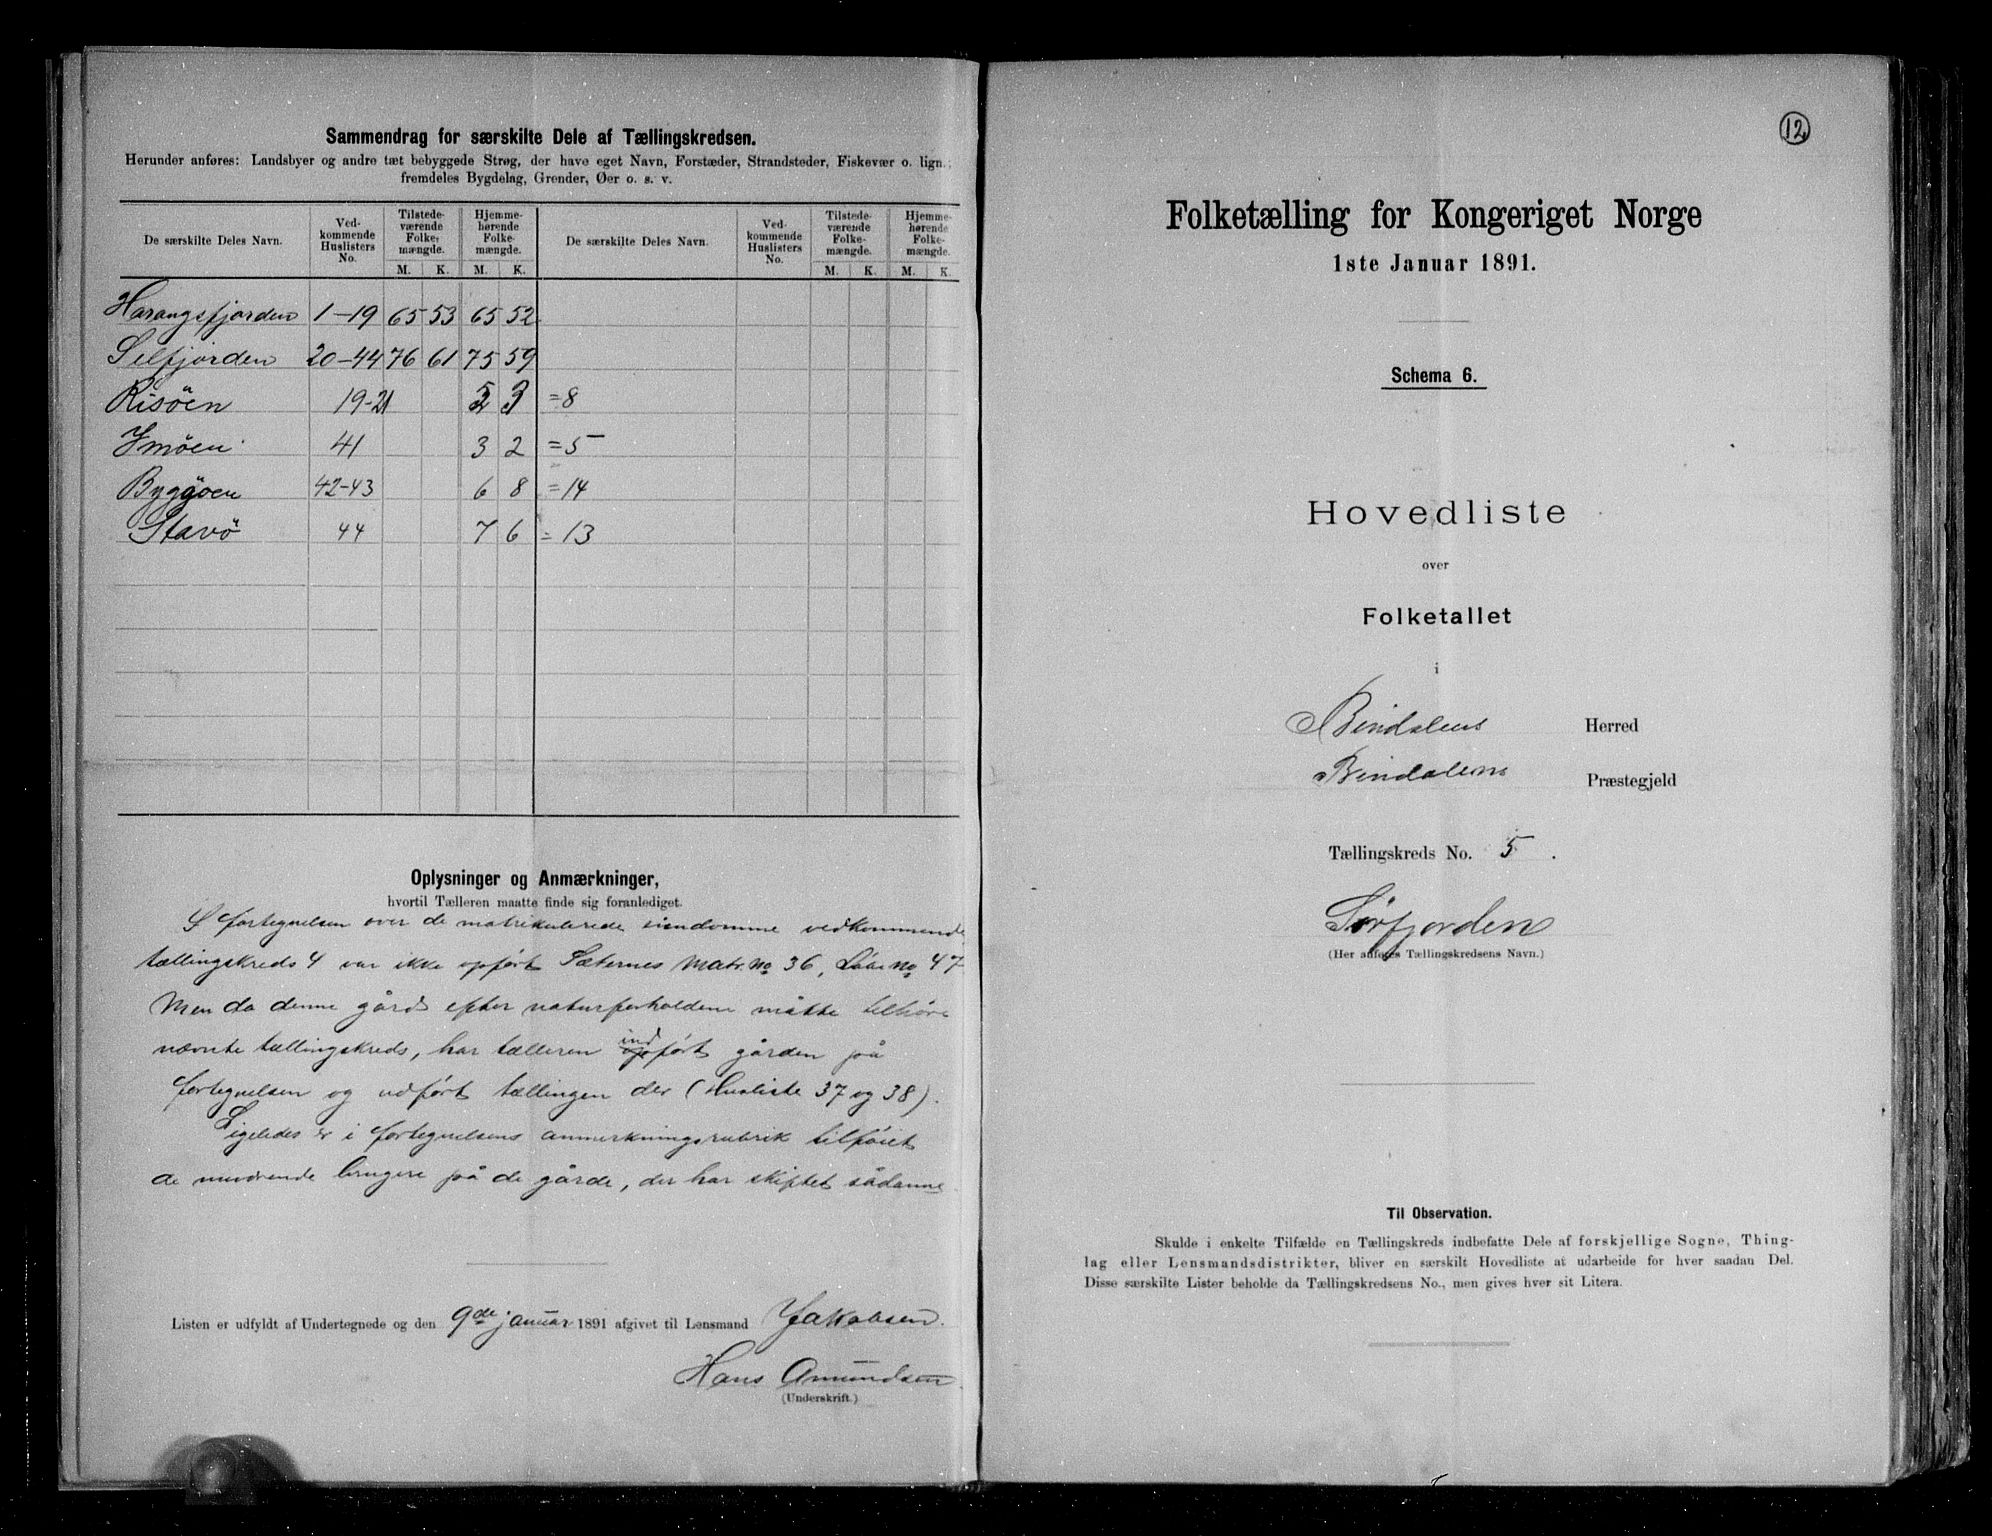 Sammendrag for særskilte Dele af Tællingskredsen.
Herunder anføres: Landsbyer og andre tæt bebyggede Strøg, der have eget Navn, Forstæder, Strandsteder, Fiskevær o. lign.;
fremdeles Bygdelag, Grender, Øer o. s. v.
De særskilte Deles Navn. Vedkommende Huslisters No. Tilstedeværende Folkemængde. Hjemmehørende Folkemængde. De særskilte Deles Navn. Vedkommende Huslisters No. Tilstedeværende Folkemængde. Hjemmehørende Folkemængde.
M. K. M. K. M. K. M. K.
Harangsfjorden 1-19 65 53 65 52
Silfjorden 20-44 76 61 75 59
Risöen 19-21 5 3 =8
Imøen 41 3 2 =5
Byggöen 42-43 6 8 =14
Stavö 44 7 6 =13
Oplysninger og Anmærkninger,
hvortil Tælleren maatte finde sig foranlediget.
I fortegnelsen over de matrikulerede eiendomme vedkommende
tællingskreds 4 var ikke opført Sæternes Matr. No 36, Løbe No 47
Men da denne gård efter naturforholdene måtte tilhøre
nævnte tællingskreds, har tælleren indført gården på
fortegnelsen og udført tællingen der (Husliste 37 og 38).
Ligeledes er i fortegnelsens anmerkningsrubrik tilføiet
de nuværende brugere på de gårde, der har skiftet sådanne
Listen er udfyldt af Undertegnede og den 9de januar 1891 afgivet til Lensmand Jakobsen.
Hans Amundsen
(Underskrift.)
12
Folketælling for Kongeriget Norge
1ste Januar 1891.
Schema 6.
Hovedliste
over
Folketallet
i
Bindalens Herred
Bindalens Præstegjeld
Tællingskreds No. 5.
Sørfjorden
(Her anføres Tællingskredsens Navn.)
Til Observation.
Skulde i enkelte Tilfælde en Tællingskreds indbefatte Dele af forskjellige Sogne, Thing-
lag eller Lensmandsdistrikter, bliver en særskilt Hovedliste at udarbeide for hver saadan Del.
Disse særskilte Lister beholde da Tællingskredsens No., men gives hver sit Litera.